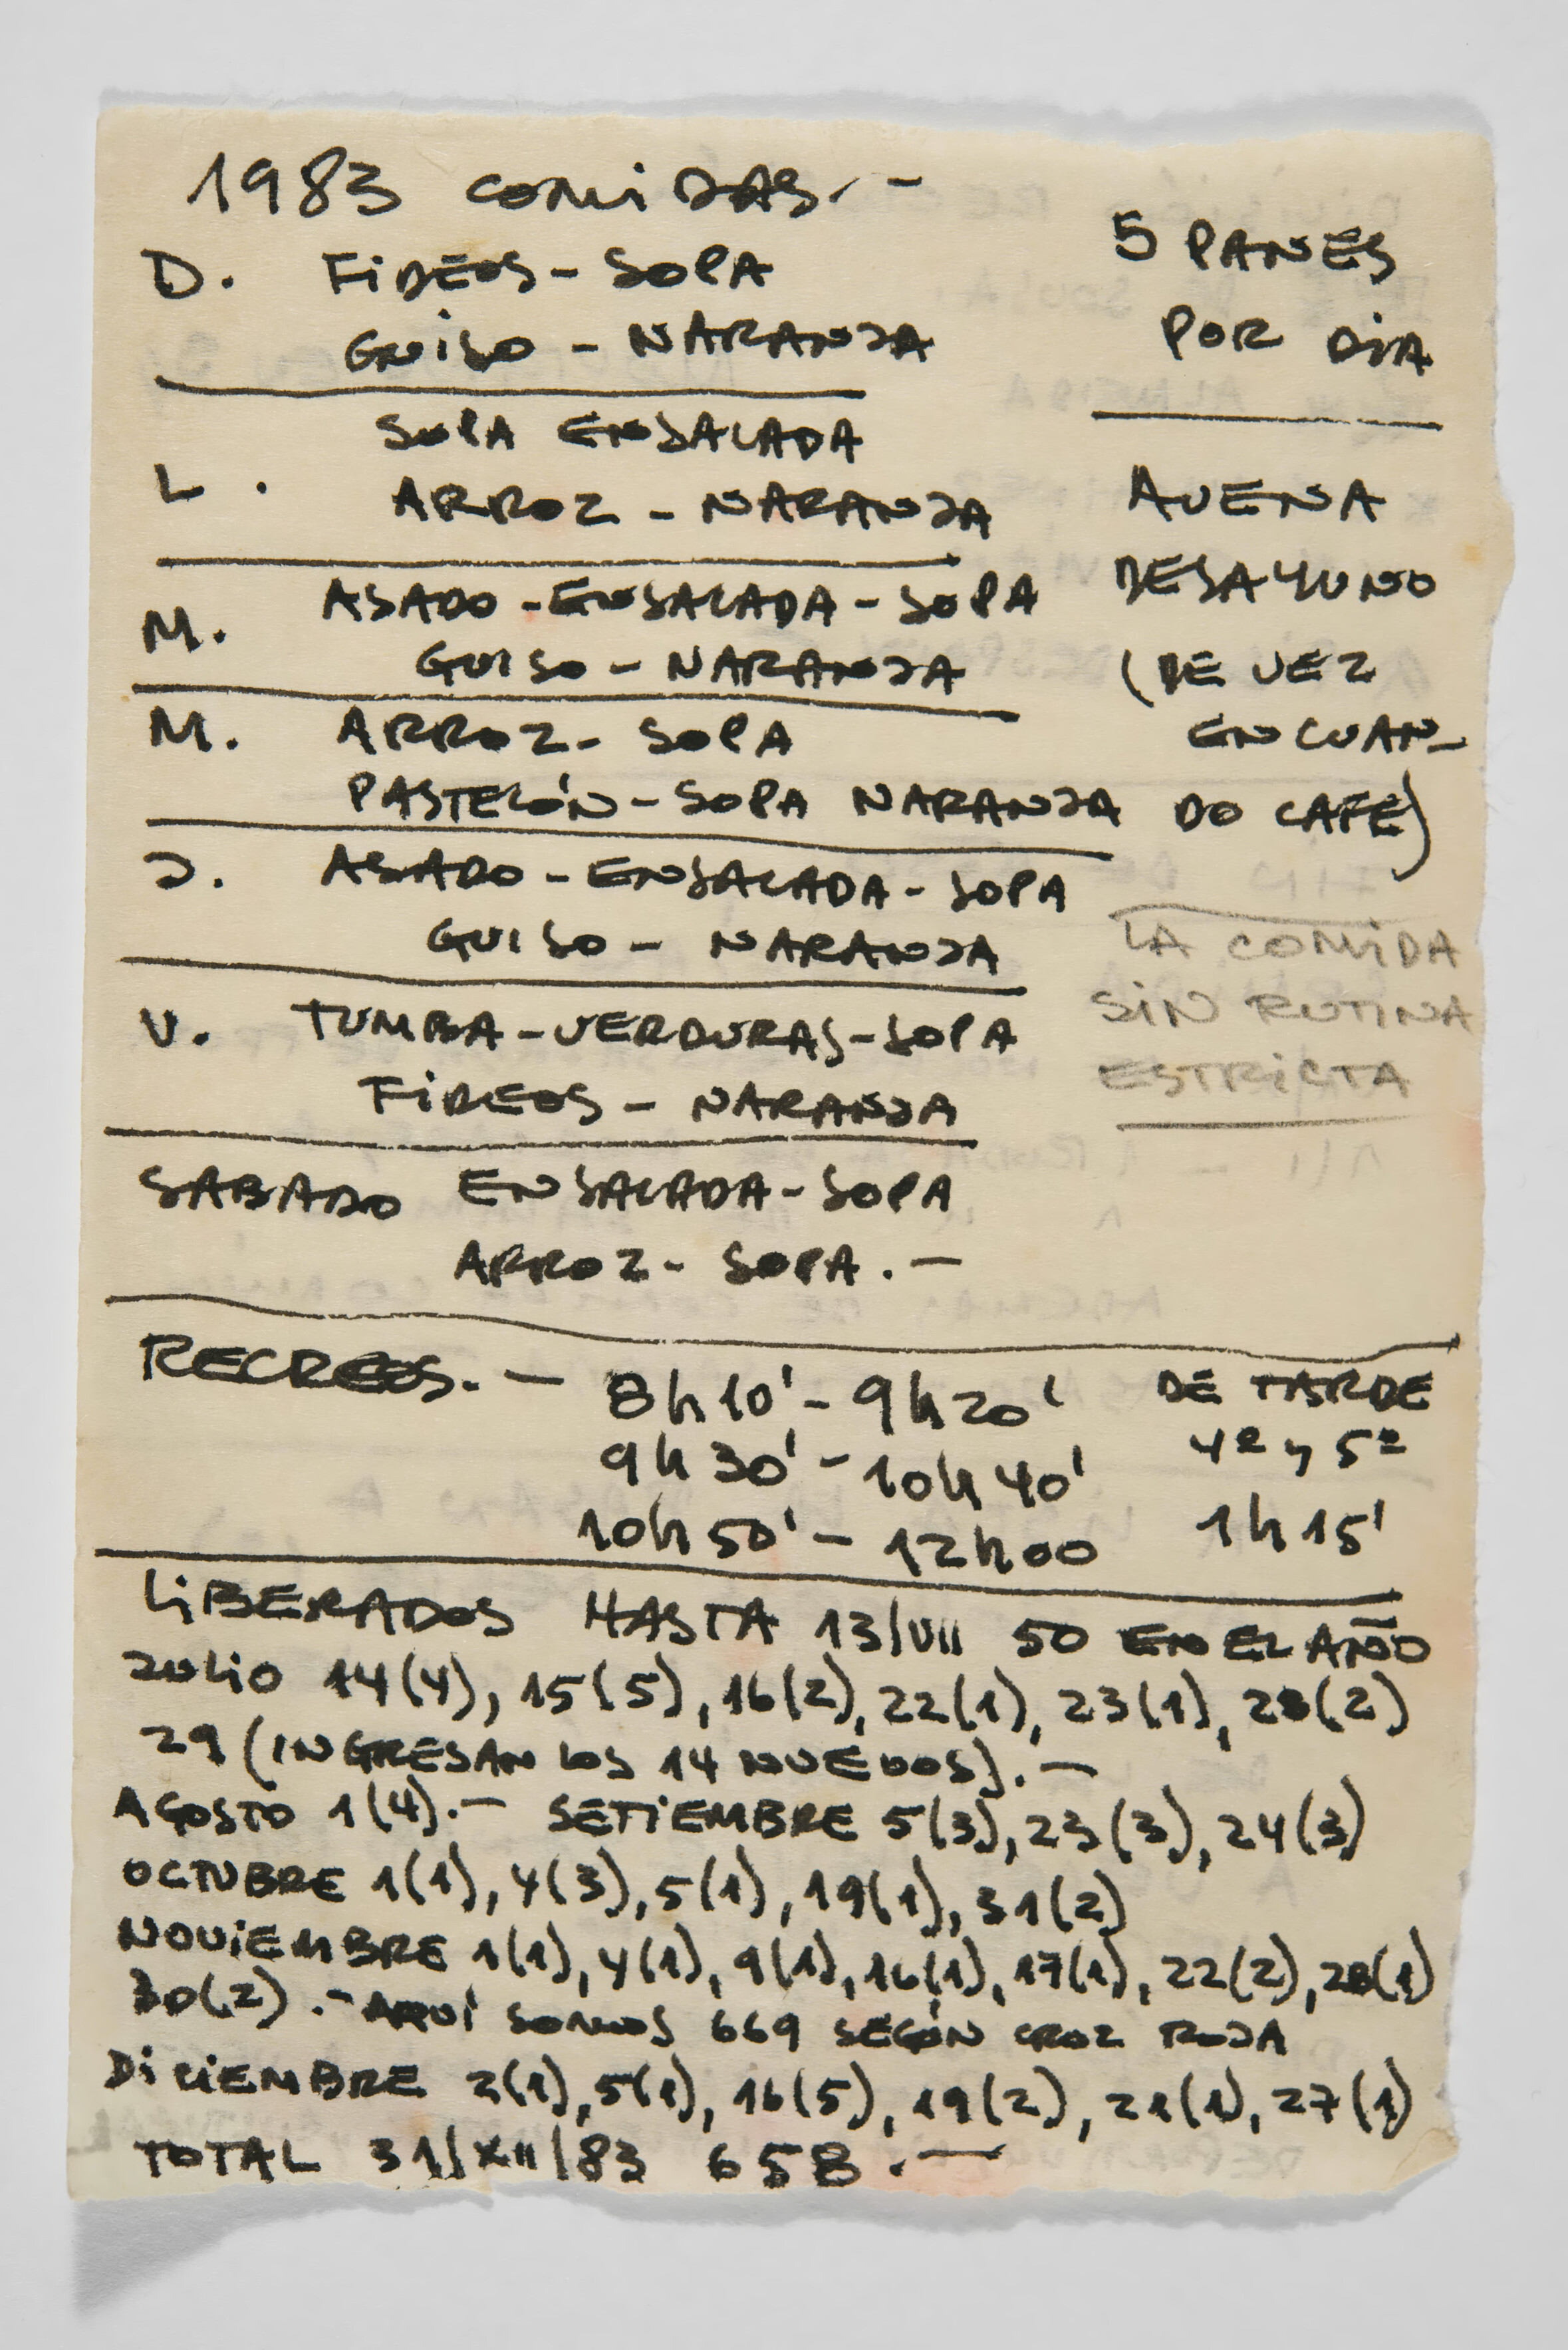 1983 COMIDAS.-
D. FIDEOS - SOPA
GUISO - NARANJA
L. SOPA ENSALADA
ARROZ - NARANJA
M. ASADO - ENSALADA - SOPA
GUISO - NARANJA
M. ARROZ - SOPA
PASTELÓN - SOPA NARANJA
J. ASADO - ENSALADA - SOPA
GUISO - NARANJA
V. TUMBA - VERDURAS - SOPA
FIDEOS - NARANJA
SABADO ENSALADA - SOPA
ARROZ - SOPA.-
5 PANES
POR DIA
AVENA
DESAYUNO
(DE VEZ
EN CUAN-
DO CAFE)
LA COMIDA
SIN RUTINA
ESTRICTA
RECREOS.- 8h10' - 9h20'
9h30' - 10h40'
10h50' - 12h00
DE TARDE
4º y 5º
1h15'
LIBERADOS HASTA 13/VII 50 EN EL AÑO
JULIO 14(4), 15(5), 16(2), 22(1), 23(1), 28(2)
29 (INGRESAN LOS 14 NUEVOS).-
AGOSTO 1(4).- SETIEMBRE 5(3), 23(3), 24(3)
OCTUBRE 1(1), 4(3), 5(1), 19(1), 31(2)
NOVIEMBRE 1(1), 4(1), 9(1), 16(1), 17(1), 22(2), 28(1)
30(2).- AQUÍ SOMOS 669 SEGÚN CRUZ ROJA
DICIEMBRE 2(1), 5(1), 16(5), 19(2), 21(1), 27(1)
TOTAL 31/XII/83 658.-